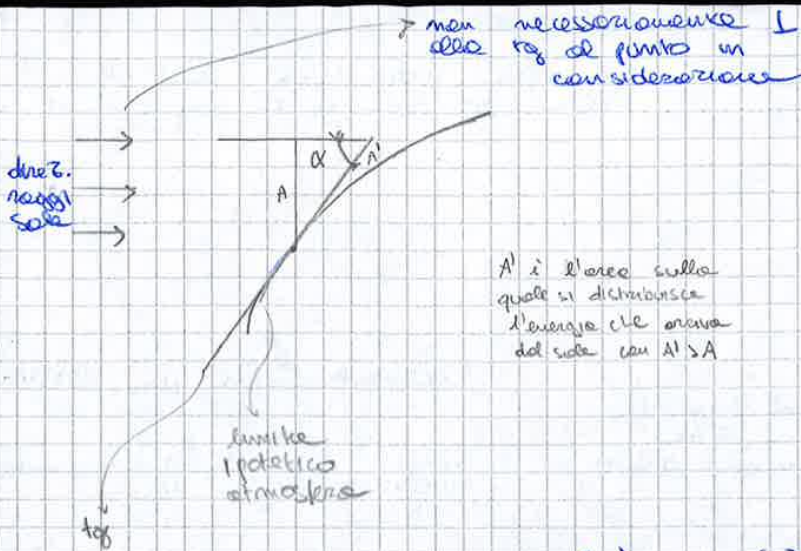 non necessariamente ⊥
alla tg al punto in
considerazione
direz.
raggi
sole
α
A'
A
A' è l'area sulla
quale si distribuisce
l'energia che arriva
dal sole con A' > A
limite
ipotetico
atmosfera
tg